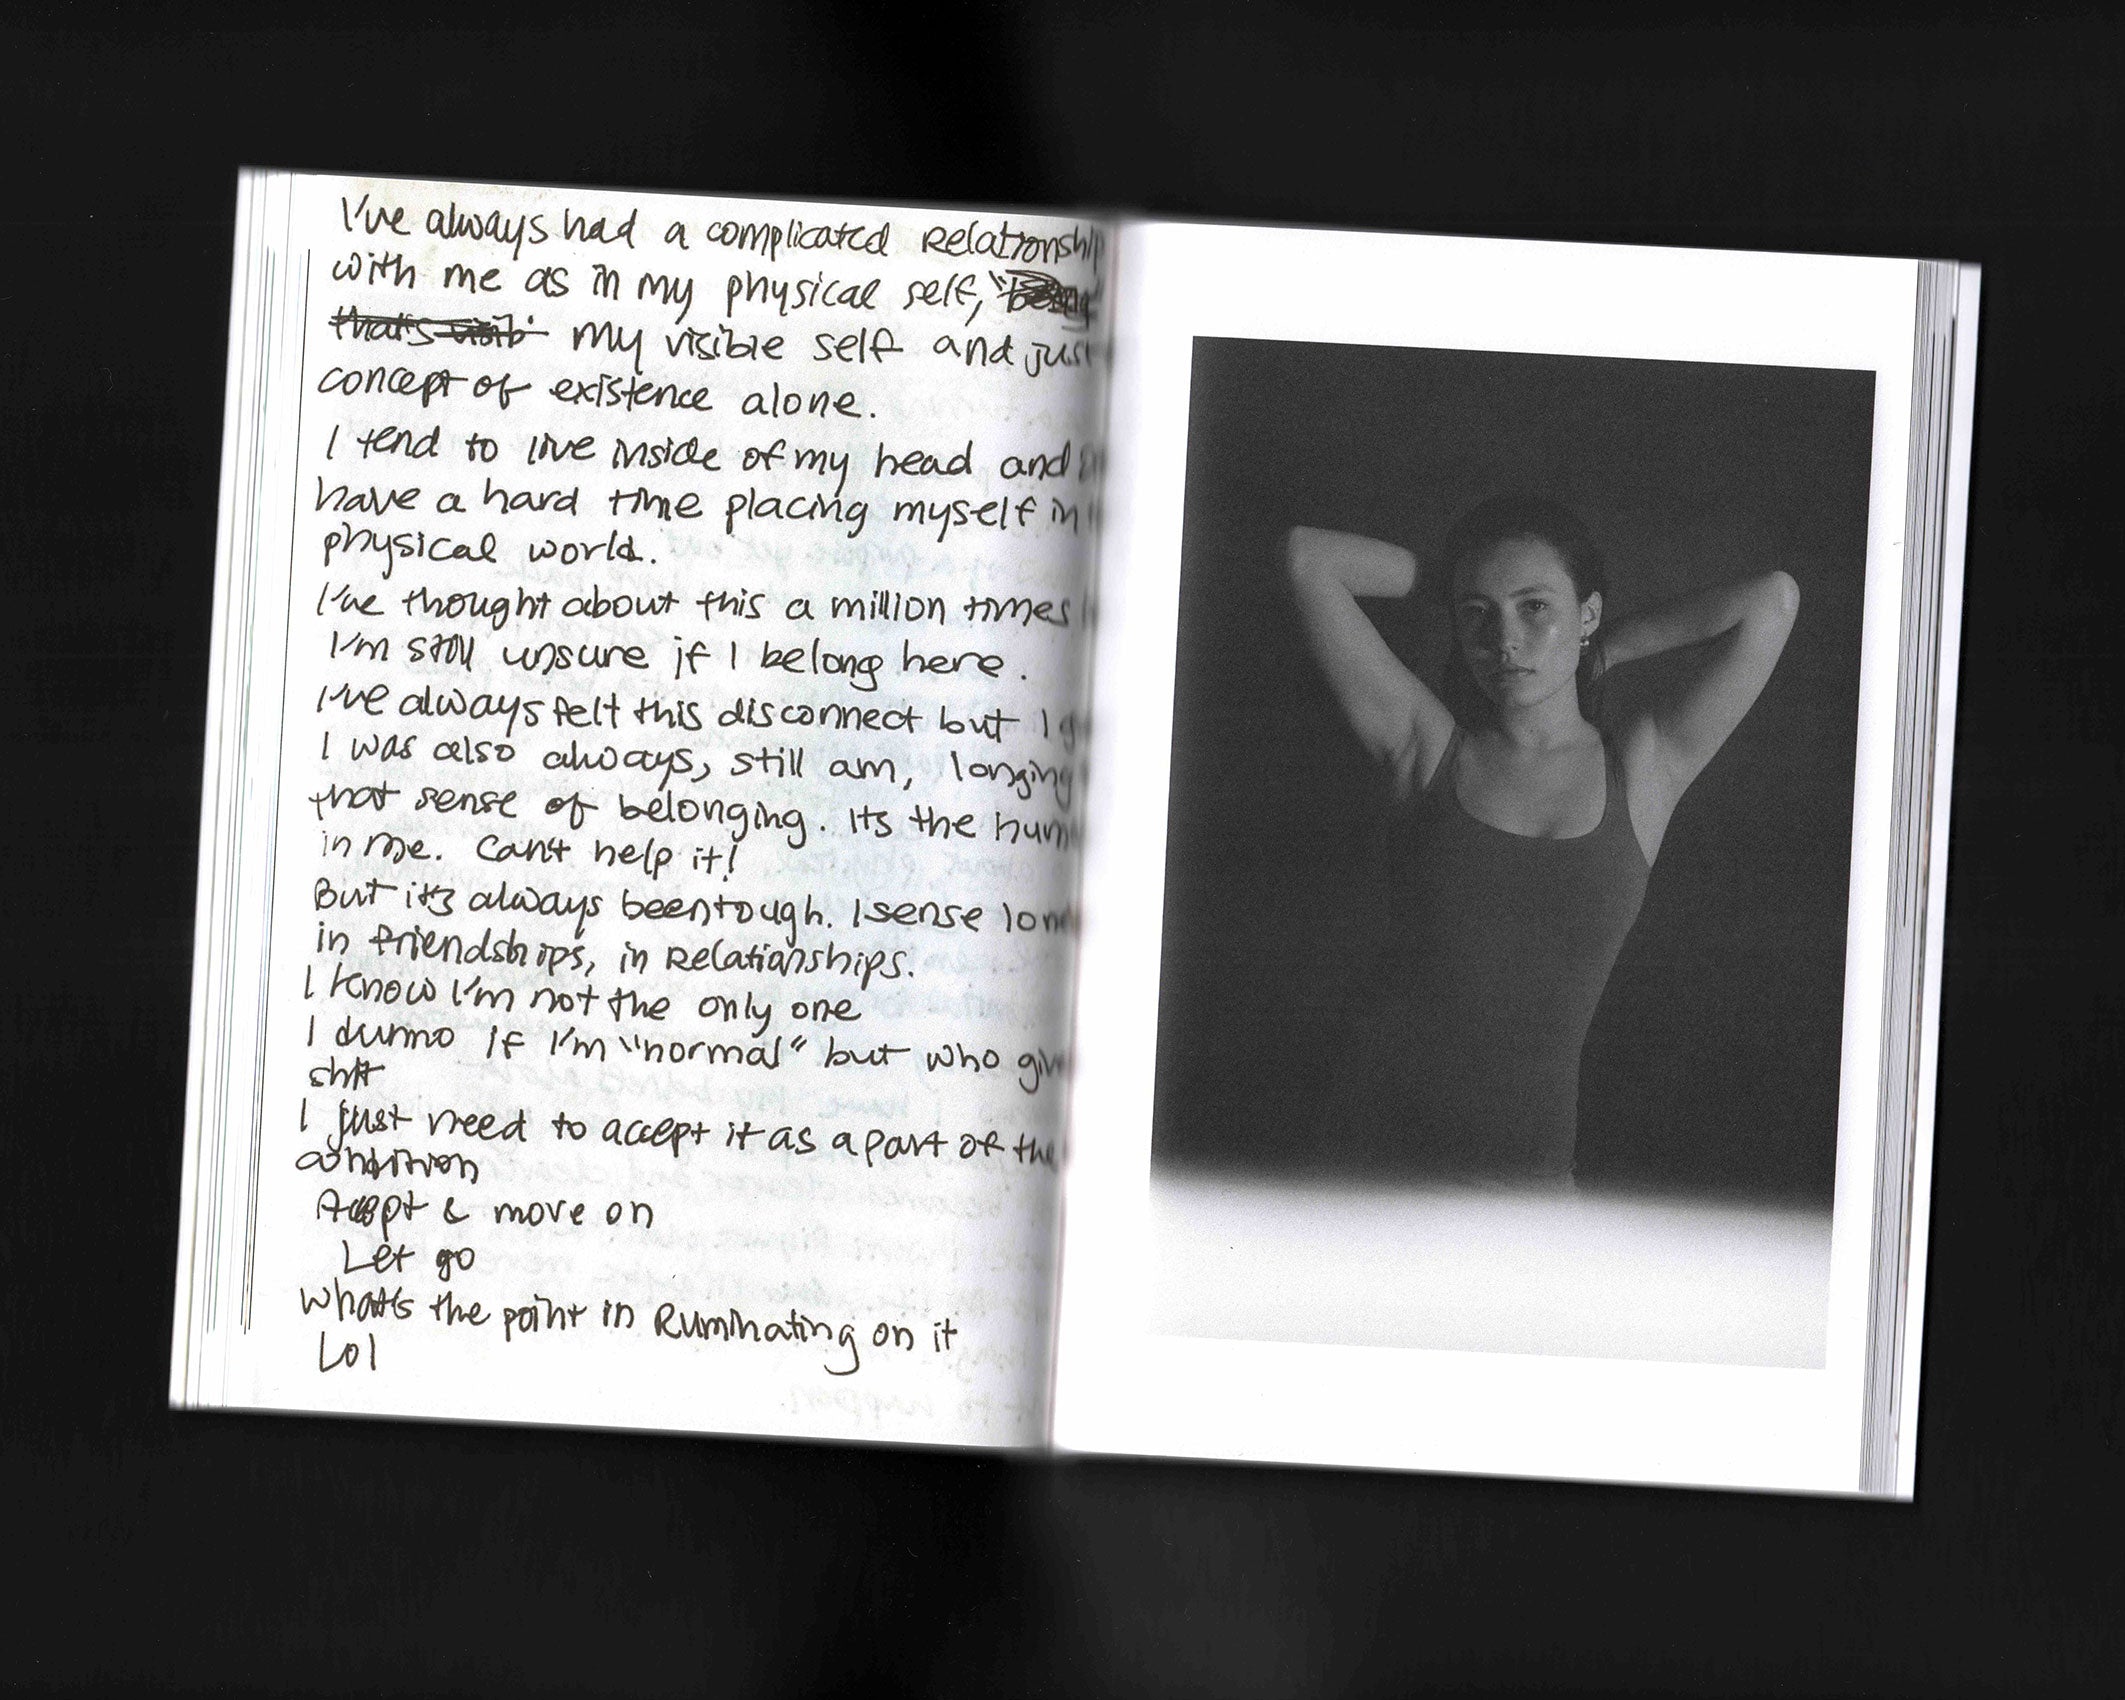 I've always had a complicated Relationship
with me as in my physical self, "being"
that's visib' my visible self and just
concept of existence alone.
I tend to live inside of my head and
have a hard time placing myself in
physical world.
I've thought about this a million times
I'm still unsure if I belong here.
I've always felt this disconnect but I
I was also always, still am, longing
that sense of belonging. Its the hum
in me. Can't help it!
But its always been tough. I sense lon
in friendships, in Relationships.
I know I'm not the only one
I dunno if I'm "normal" but who giv
shit
I just need to accept it as a part of the
condition
Accept & move on
Let go
What's the point in Ruminating on it
Lol